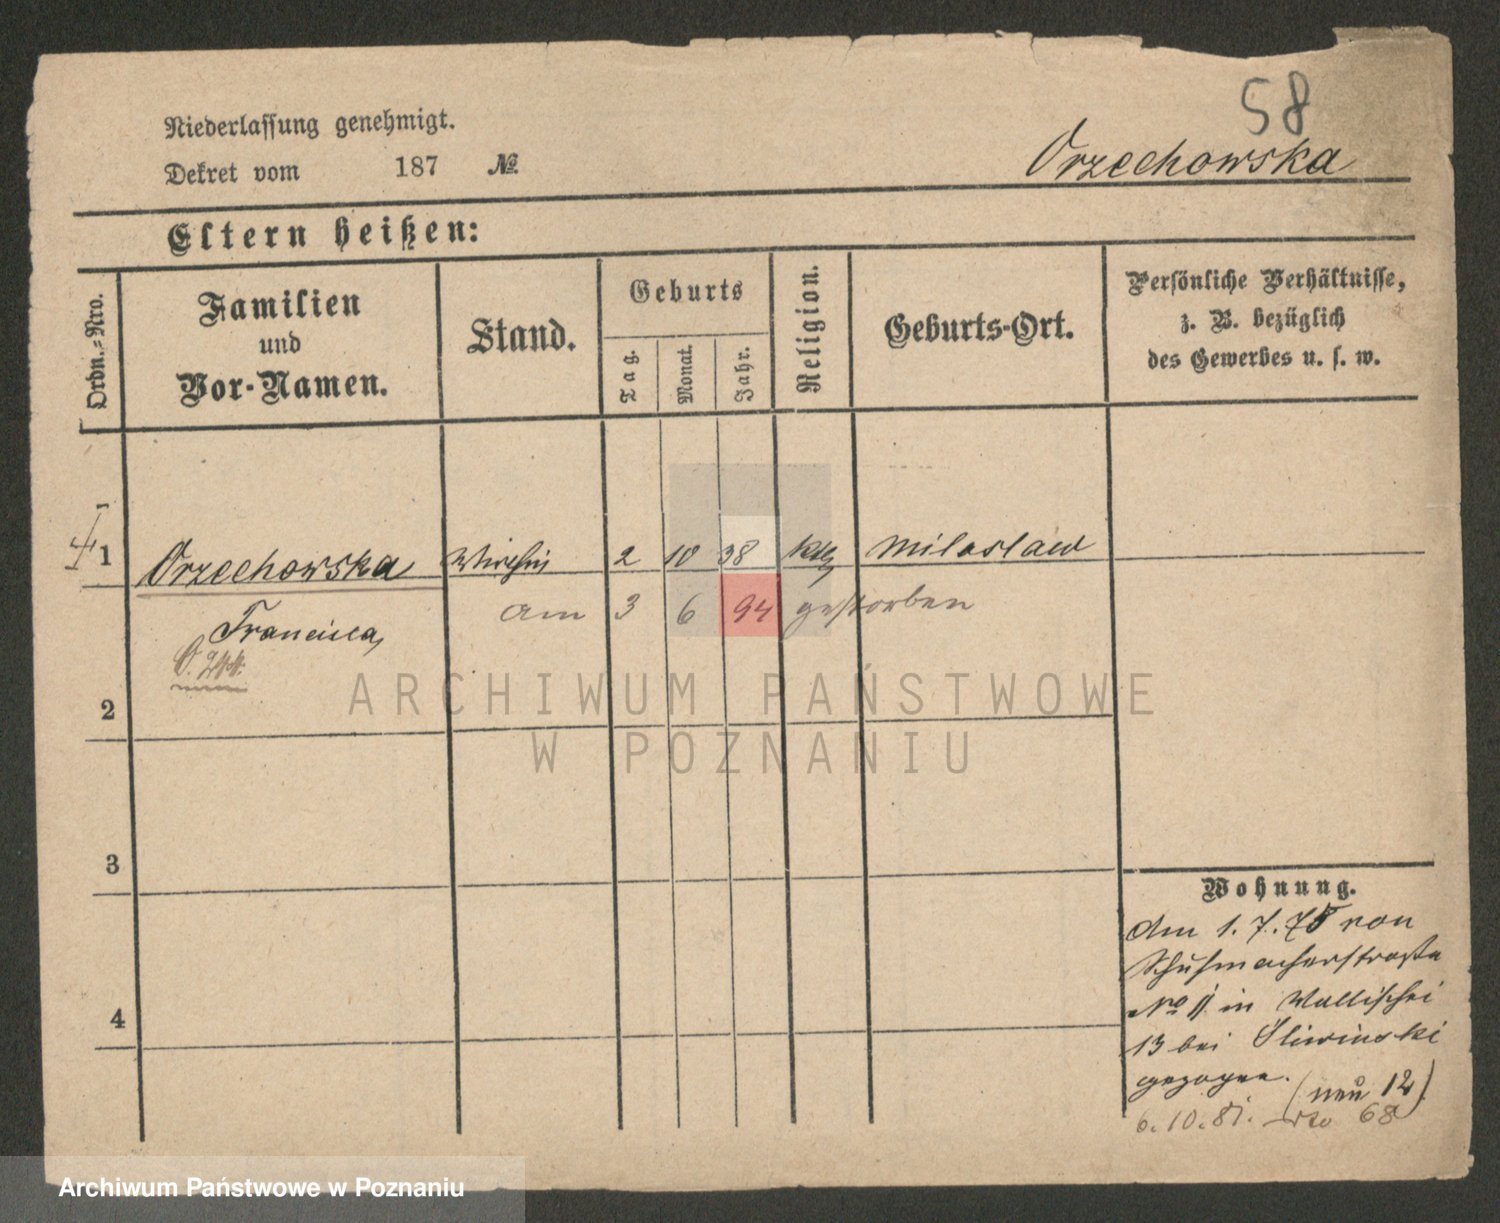 58
Niederlassung genehmigt.
Dekret vom 187 №
Orzechowska
Eltern heißen:
Ordn.-Nro.
Familien
und
Vor-Namen.
Stand.
Geburts
Tag.
Monat.
Jahr.
Religion.
Geburts-Ort.
Persönliche Verhältnisse,
z. B. bezüglich
des Gewerbes u. s. w.
1 Orzechowska 2 10 38 Miloslaw
am 3 6 94 gestorben
Francisca
2
3
4
Wohnung.
Am 1. 7. 78 von
Schuhmacherstraße
No 11 in Wallischei
13 bei Sliwinski
gezogen. (neu 12)
6. 10. 81. 68
ARCHIWUM PAŃSTWOWE
W POZNANIU
Archiwum Państwowe w Poznaniu